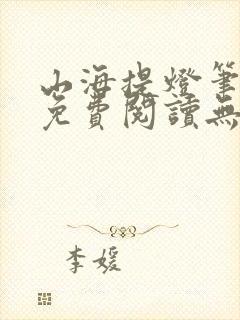 山海提燈筆
免費閱讀無
李媛